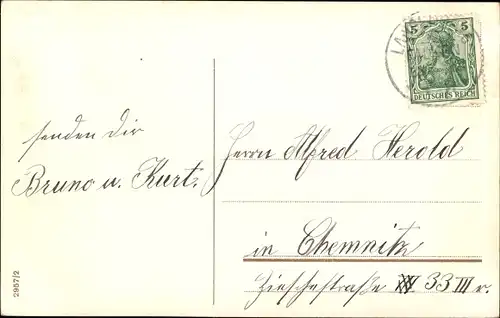 senden dir
Bruno u. Kurt.
2957/2
5 5
DEUTSCHES REICH
Herrn Alfred Herold
in Chemnitz
Zieschestraße 33 III r.